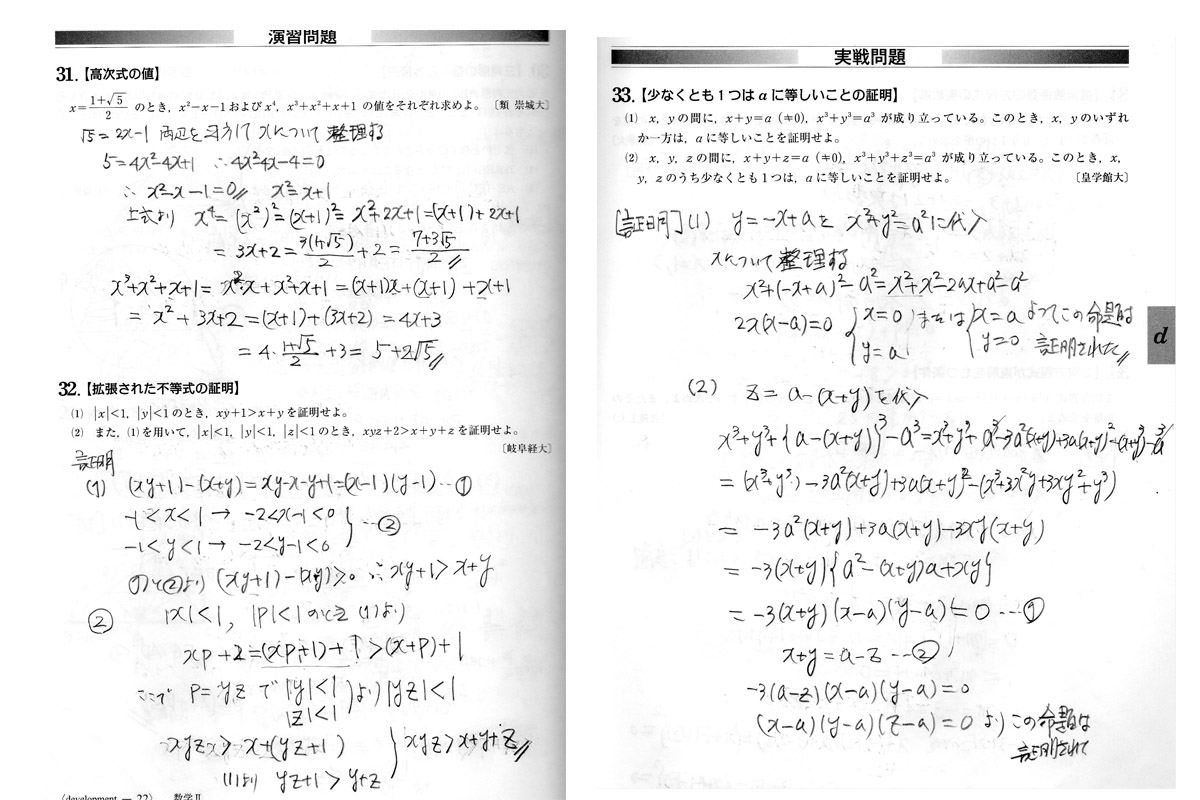 演習問題
31.【高次式の値】
x=\frac{1+√5}{2} のとき，x²−x−1 および x⁴，x³+x²+x+1 の値をそれぞれ求めよ。〔類 崇城大〕
√5=2x−1 両辺を平方して xについて整理する
5=4x²−4x+1 ∴4x²−4x−4=0
∴ x²−x−1=0〃 x²=x+1
上式より x⁴=(x²)²=(x+1)²=x²+2x+1=(x+1)+2x+1
=3x+2=\frac{3(1+√5)}{2}+2=\frac{7+3√5}{2}〃
x³+x²+x+1=x²x+x²+x+1=(x+1)x+(x+1)+x+1
=x²+3x+2=(x+1)+(3x+2)=4x+3
=4・\frac{1+√5}{2}+3=5+2√5〃
32.【拡張された不等式の証明】
(1) |x|<1，|y|<1 のとき，xy+1>x+y を証明せよ。
(2) また，(1)を用いて，|x|<1，|y|<1，|z|<1 のとき，xyz+2>x+y+z を証明せよ。
〔岐阜経大〕
証明
(1) (xy+1)−(x+y)=xy−x−y+1=(x−1)(y−1)…①
−1<x<1→−2<x−1<0
−1<y<1→−2<y−1<0 …②
①と②より (xy+1)−(x+y)>0 ∴xy+1>x+y
② |x|<1, |p|<1のとき (1)より
xp+2=(xp+1)+1>(x+p)+1
ここで p=yz で |y|<1 |z|<1 より|yz|<1
xyz> x+(yz+1)
(1)より yz+1>y+z
xyz>x+y+z〃
〈development − 22〉 数学Ⅱ
実戦問題
33.【少なくとも1つは a に等しいことの証明】
(1) x，y の間に，x+y=a (≠0)，x³+y³=a³ が成り立っている。このとき，x，y のいずれ
か一方は，a に等しいことを証明せよ。
(2) x，y，z の間に，x+y+z=a (≠0)，x³+y³+z³=a³ が成り立っている。このとき，x，
y，z のうち少なくとも1つは，a に等しいことを証明せよ。〔皇学館大〕
[証明](1) y=−x+aを x²+y²=a²に代入
xについて整理する
x²+(−x+a)²−a²=x²+x²−2ax+a²−a²
2x(x−a)=0 {x=0 y=a または {x=a y=0 よってこの命題は
証明された〃
d
(2) z=a−(x+y)を代入
x³+y³+{a−(x+y)}³−a³=x³+y³+a³−3a²(x+y)+3a(x+y)²−(x+y)³−a³
=(x³+y³)−3a²(x+y)+3a(x+y)²−(x³+3x²y+3xy²+y³)
=−3a²(x+y)+3a(x+y)−3xy(x+y)
=−3(x+y){a²−(x+y)a+xy}
=−3(x+y)(x−a)(y−a)=0…①
x+y=a−z…②
−3(a−z)(x−a)(y−a)=0
(x−a)(y−a)(z−a)=0よりこの命題は
証明された